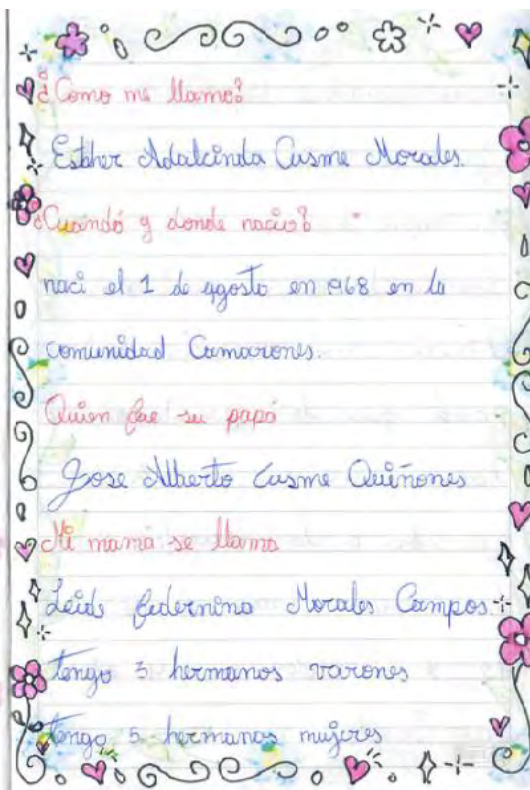 ¿Como me llamo?
Esther Adalcinda Cusme Morales.
¿Cuándo y donde nacio?
naci el 1 de agosto en 1968 en la
comunidad Camarones.
Quien fue su papá
Jose Alberto Cusme Quiñones
Mi mamá se llama
Leide federnina Morales Campos.
tengo 3 hermanos varones
tengo 5 hermanas mujeres